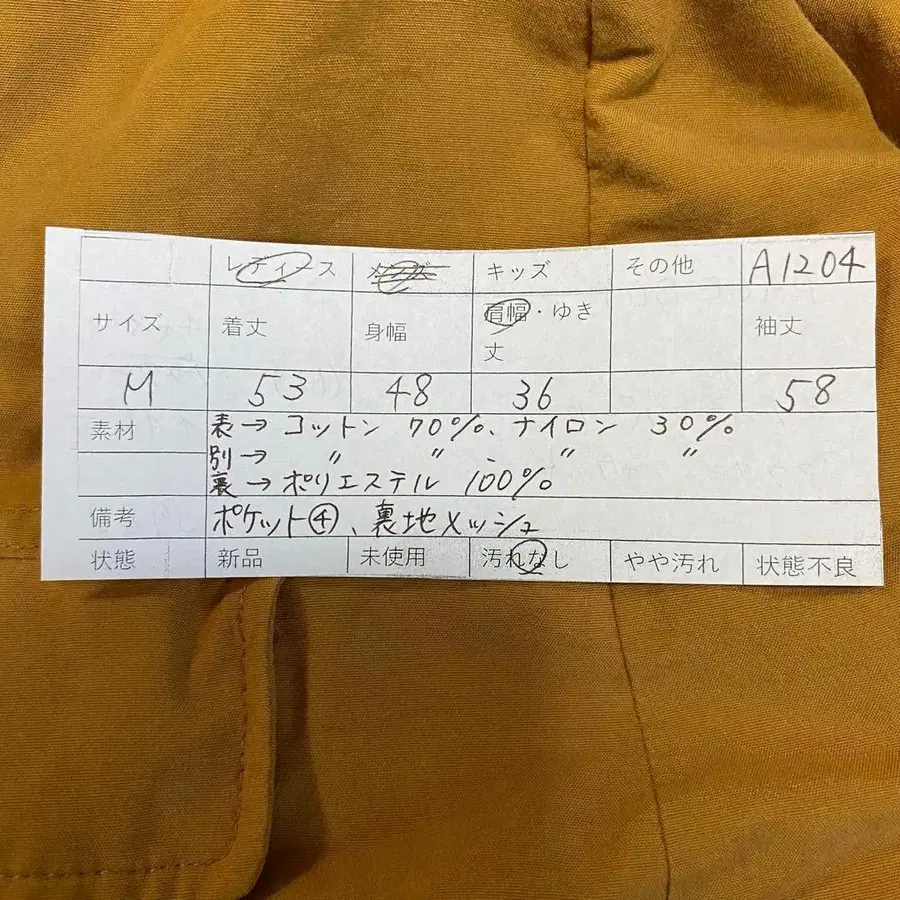 レディース メンズ キッズ その他 A1204
サイズ 着丈 身幅 肩幅・ゆき丈 袖丈
M 53 48 36 58
素材 表→コットン 70%、ナイロン 30%
別→ 〃 〃 、 〃 〃
裏→ポリエステル 100%
備考 ポケット④、裏地メッシュ
状態 新品 未使用 汚れなし やや汚れ 状態不良